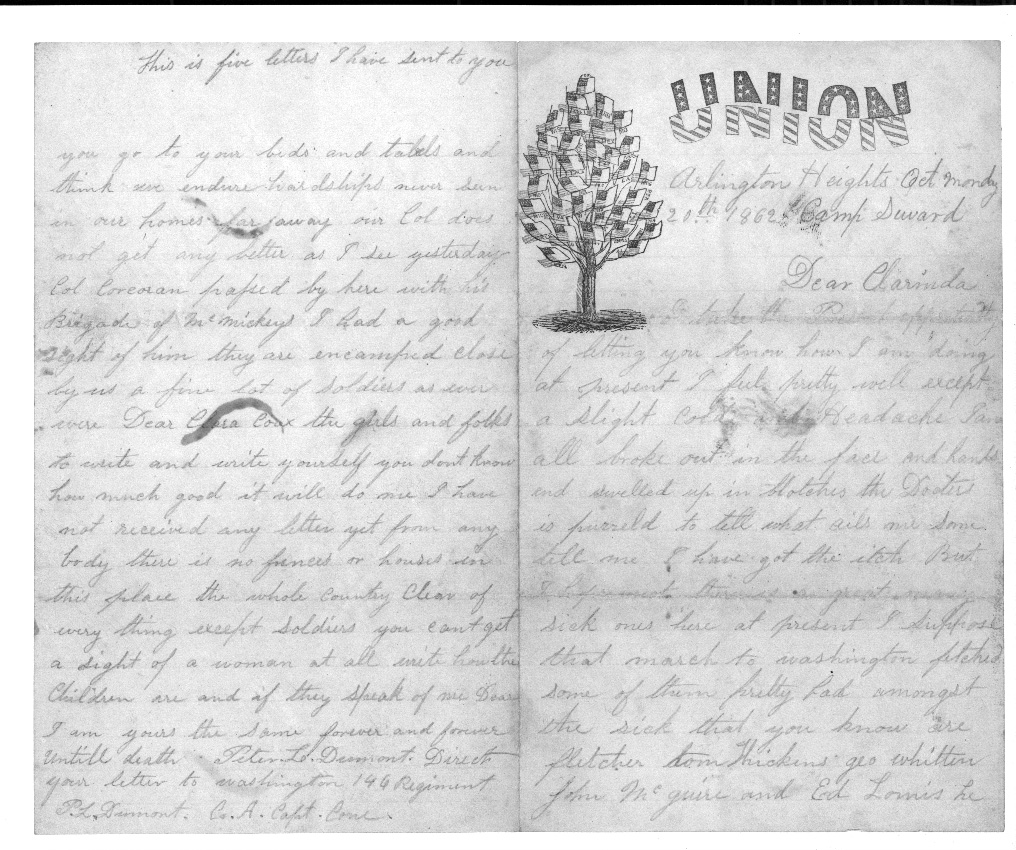 UNION
Arlington Heights Oct Monday
20th 1862 Camp Suward
Dear Clarinda
take the opportunity
of letting you know how I am doing
at present I feel pretty well except
a slight cold and Headache I am
all broke out in the face and hands
and swelled up in blotches the Docter
is puzzeld to tell what ails me some
tell me I have got the itch But
I hope not there is a great many
sick ones here at present I suppose
that march to washington fetched
some of them pretty bad amongst
the sick that you know are
fletcher tom Hickins geo whitten
John Mc guire and Ed Lomis he
This is five letters I have sent to you
you go to your beds and and
think we endure hardships never seen
in our homes far away our Col does
not get any better as I see yesterday
Col Corcoran passed by here with his
Brigade of Mc Mickeys I had a good
sight of him they are encamped close
by us a fine lot of soldiers as ever
were Dear Clara Coax the girls and folks
to write and write yourself you dont know
how much good it will do me I have
not received any letter yet from any
body there is no fences or houses in
this place the whole country Clear of
every thing except soldiers you cant get
a sight of a woman at all write how the
Children are and if they speak of me Dear
I am yours the same forever and forever
Untill death Peter L. Dumont. Direct
your letter to washington 146 Regiment
P.L. Dumont. Co. A. Capt. Cone.